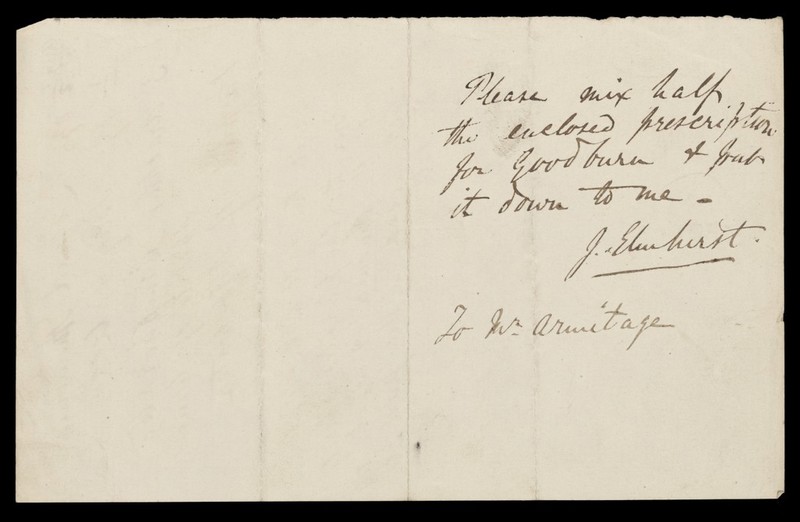 Please mix half
the enclosed prescription
for Goodburn & put
it down to me -
J. Elmhirst.
To Mr Armitage